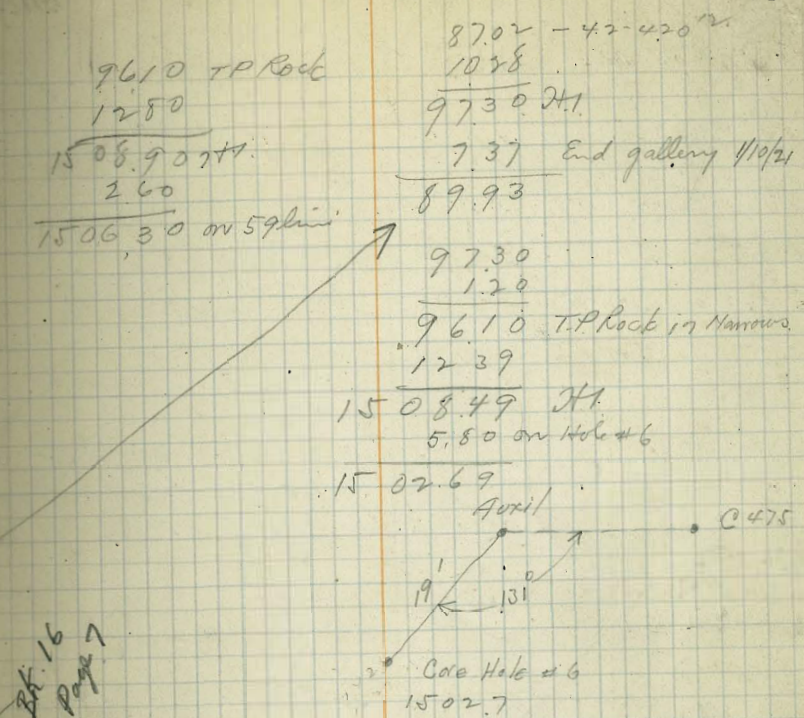 9610 TP Rock
1280
1508.90 HI.
2.60
1506.30 on 59 line
87.02 - 42-420
10.28
97.30 HI
7.37 End gallery 1/10/21
89.93
97.30
1.20
96.10 T.P. Rock in Narrows
12.39
1508.49 HI
5.80 on Hole #6
1502.69
Auxil
C 475
19'
131°
Core Hole #6
1502.7
BK. 16
Page 7